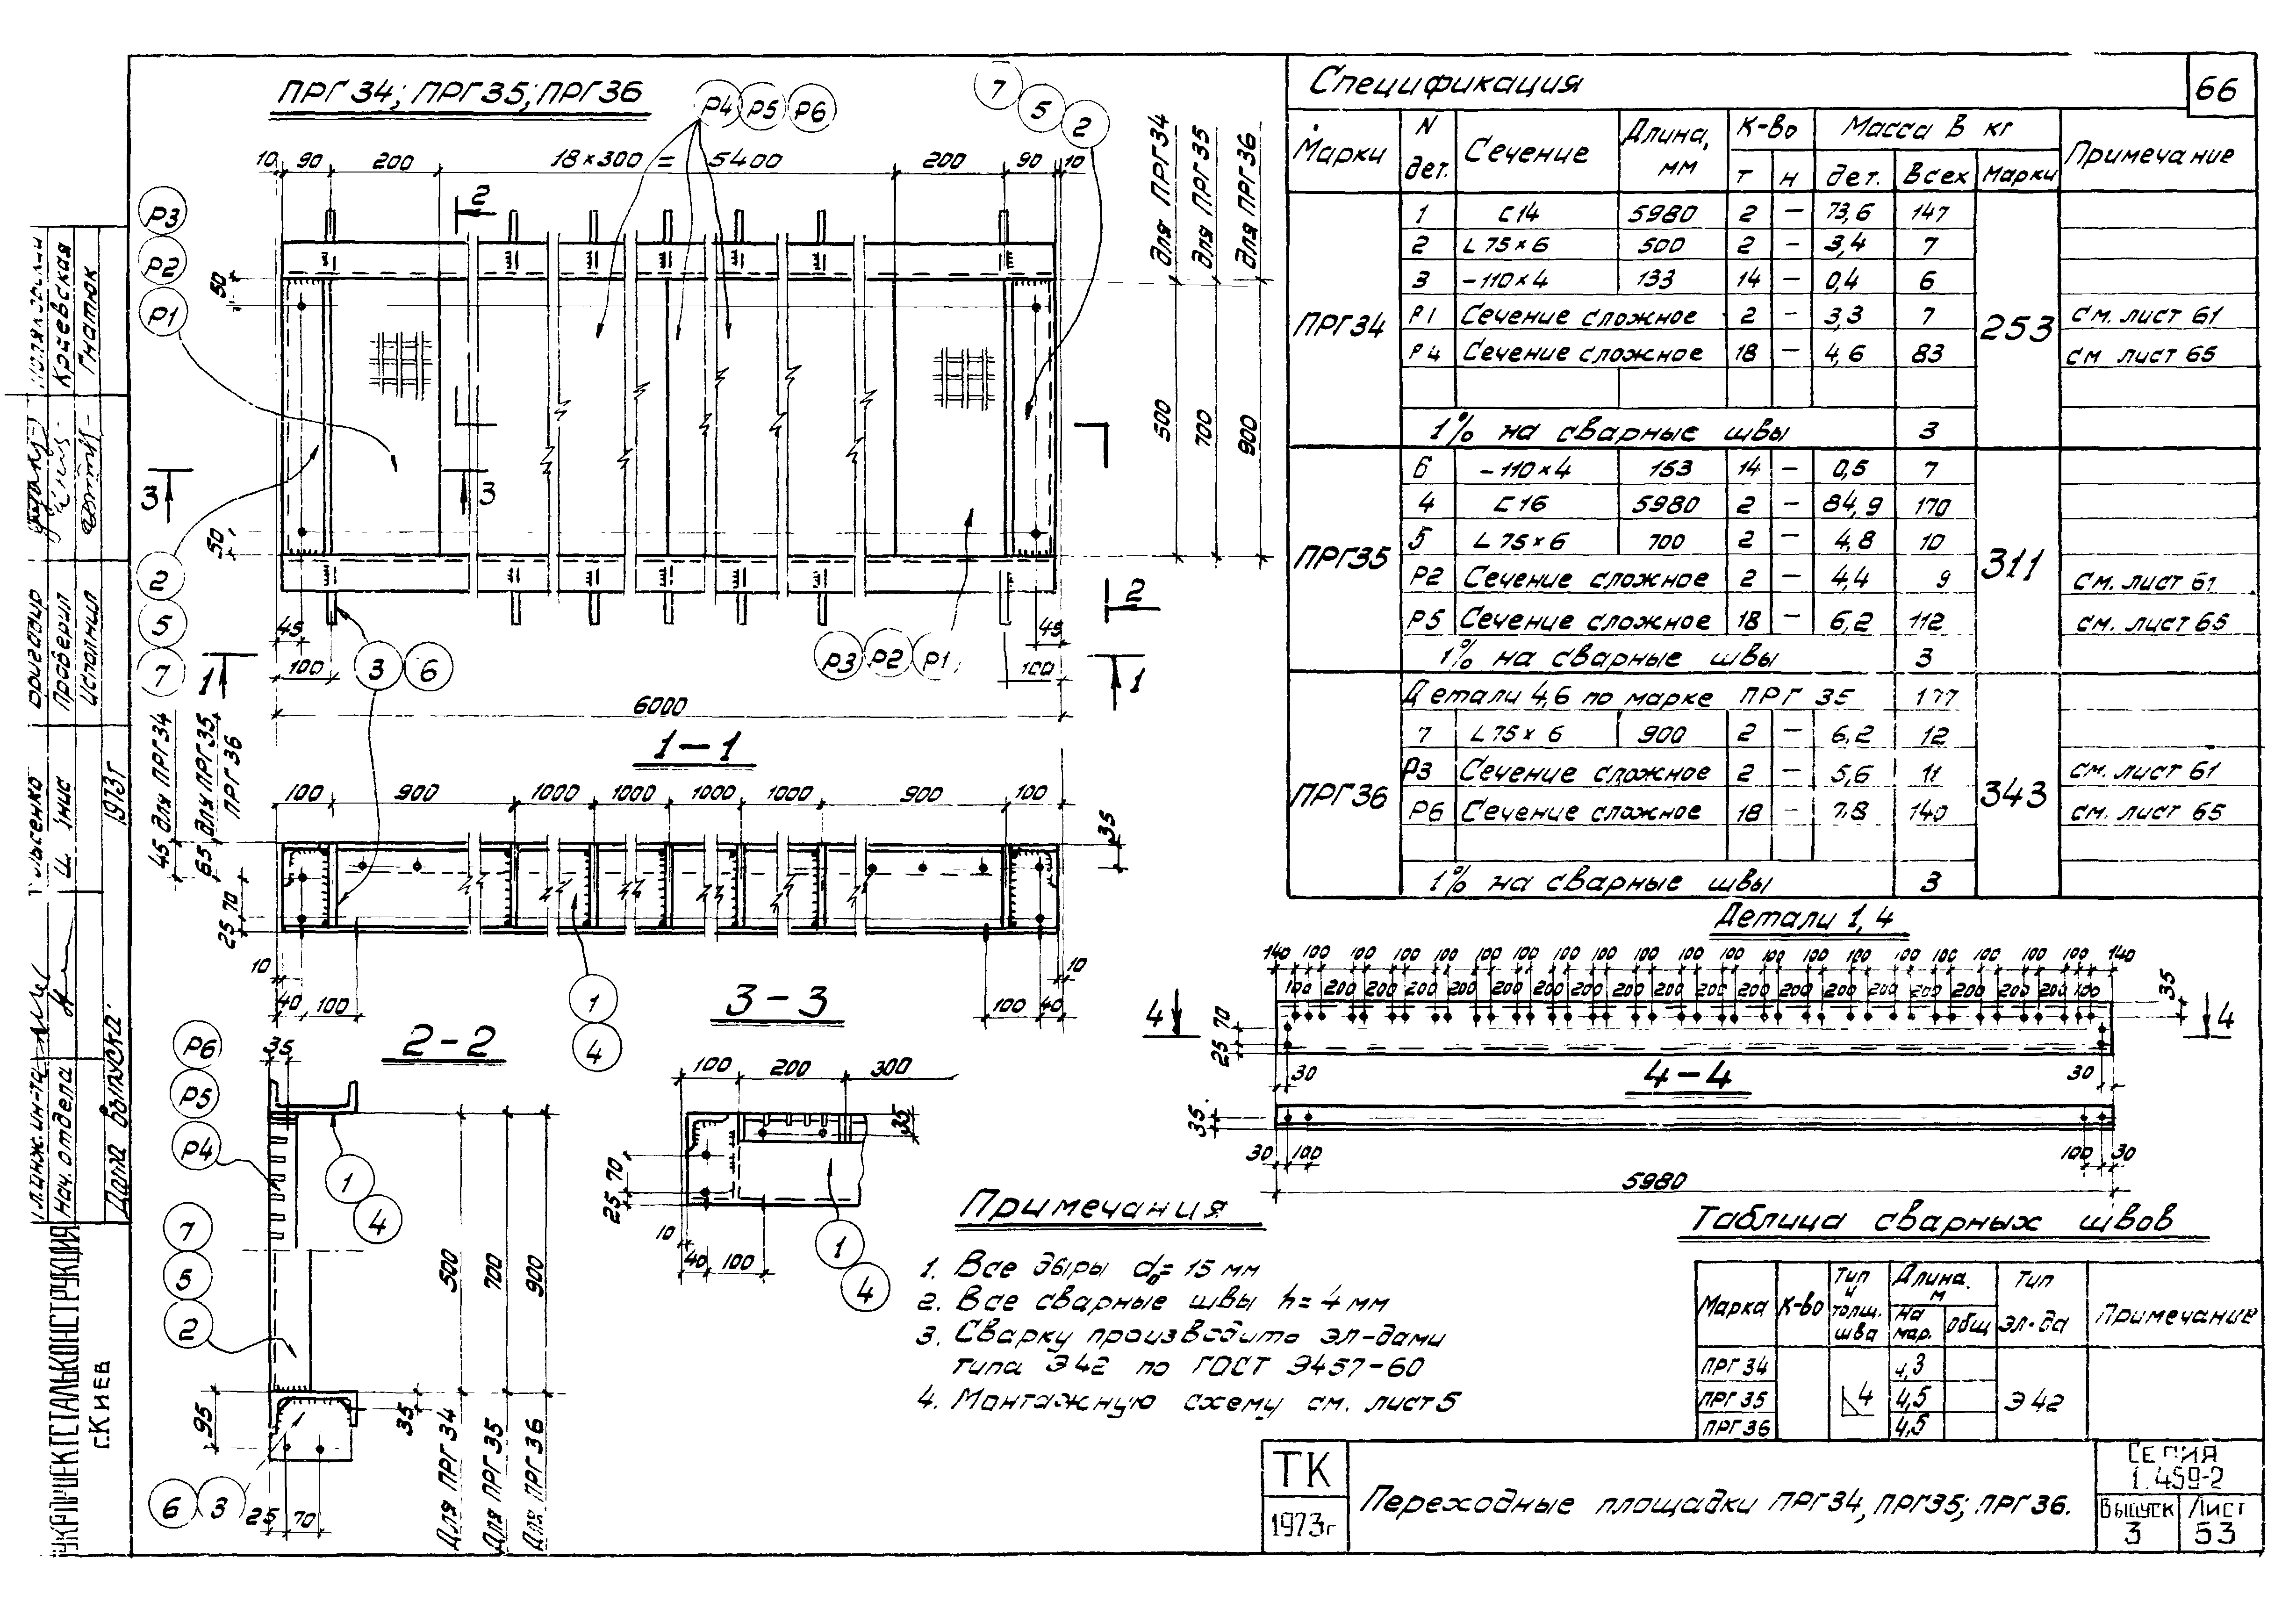 ПРГ34; ПРГ35; ПРГ36
Р4 Р5 Р6
7 5 2
10 90 200 18×300 = 5400 200 90 10
для ПРГ34
для ПРГ35
для ПРГ36
Р3
Р2
Р1
2
50
500
700
900
3 3
50
2
5
7
45 45
2
100 3 6 Р3 Р2 Р1 100
1 1
6000
1-1
45 для ПРГ34
65 для ПРГ35,
ПРГ36
100 900 1000 1000 1000 1000 900 100
35
70
25
10 10
40 100 100 40
1
4
2-2
35
Р6
Р5
Р4
1
4
7
5
2
500
700
900
95
35
6 3
25 70
Для ПРГ34
Для ПРГ35
Для ПРГ36
3-3
100 200 300
35
70
25
10
40 100
1
4
Примечания
1. Все дыры d₀= 15 мм
2. Все сварные швы h= 4 мм
3. Сварку производить эл-дами
типа Э42 по ГОСТ 9457-60
4. Монтажную схему см. лист 5
Спецификация
66
Марки N дет. Сечение Длина, мм К-во Масса в кг Примечание
т н дет. Всех Марки
ПРГ34 253
1 С14 5980 2 – 73,6 147
2 L 75×6 500 2 – 3,4 7
3 –110×4 133 14 – 0,4 6
Р1 Сечение сложное 2 – 3,3 7 см. лист 61
Р4 Сечение сложное 18 – 4,6 83 см лист 65
1% на сварные швы 3
ПРГ35 311
6 –110×4 153 14 – 0,5 7
4 С16 5980 2 – 84,9 170
5 L 75×6 700 2 – 4,8 10
Р2 Сечение сложное 2 – 4,4 9 см. лист 61
Р5 Сечение сложное 18 – 6,2 112 см. лист 65
1% на сварные швы 3
ПРГ36 343
Детали 4,6 по марке ПРГ 35 177
7 L 75×6 900 2 – 6,2 12
Р3 Сечение сложное 2 – 5,6 11 см. лист 61
Р6 Сечение сложное 18 – 7,8 140 см. лист 65
1% на сварные швы 3
Детали 1, 4
140 100 100 100 100 100 100 100 100 100 100 100 100 100 100 100 100 100 100 100 140
100 200 200 200 200 200 200 200 200 200 200 200 200 200 200 200 200 200 100
35
4 4
70
25
30 30
4-4
35
30 100 100 30
5980
Таблица сварных швов
Марка К-во Тип и толщ. шва Длина. м Тип эл-да Примечание
на мар. общ
ПРГ34 4,3
ПРГ35 4 4,5 Э42
ПРГ36 4,5
ТК
1973г
Переходные площадки ПРГ34, ПРГ35; ПРГ36.
СЕРИЯ
1.459-2
Выпуск Лист
3 53
Краевская
Гнатюк
Бригадир
Проверил
Исполнил
1973г
Гл.инж.ин-та
Нач. отдела
Дата выпуска:
УКРПРОЕКТСТАЛЬКОНСТРУКЦИЯ
г.Киев